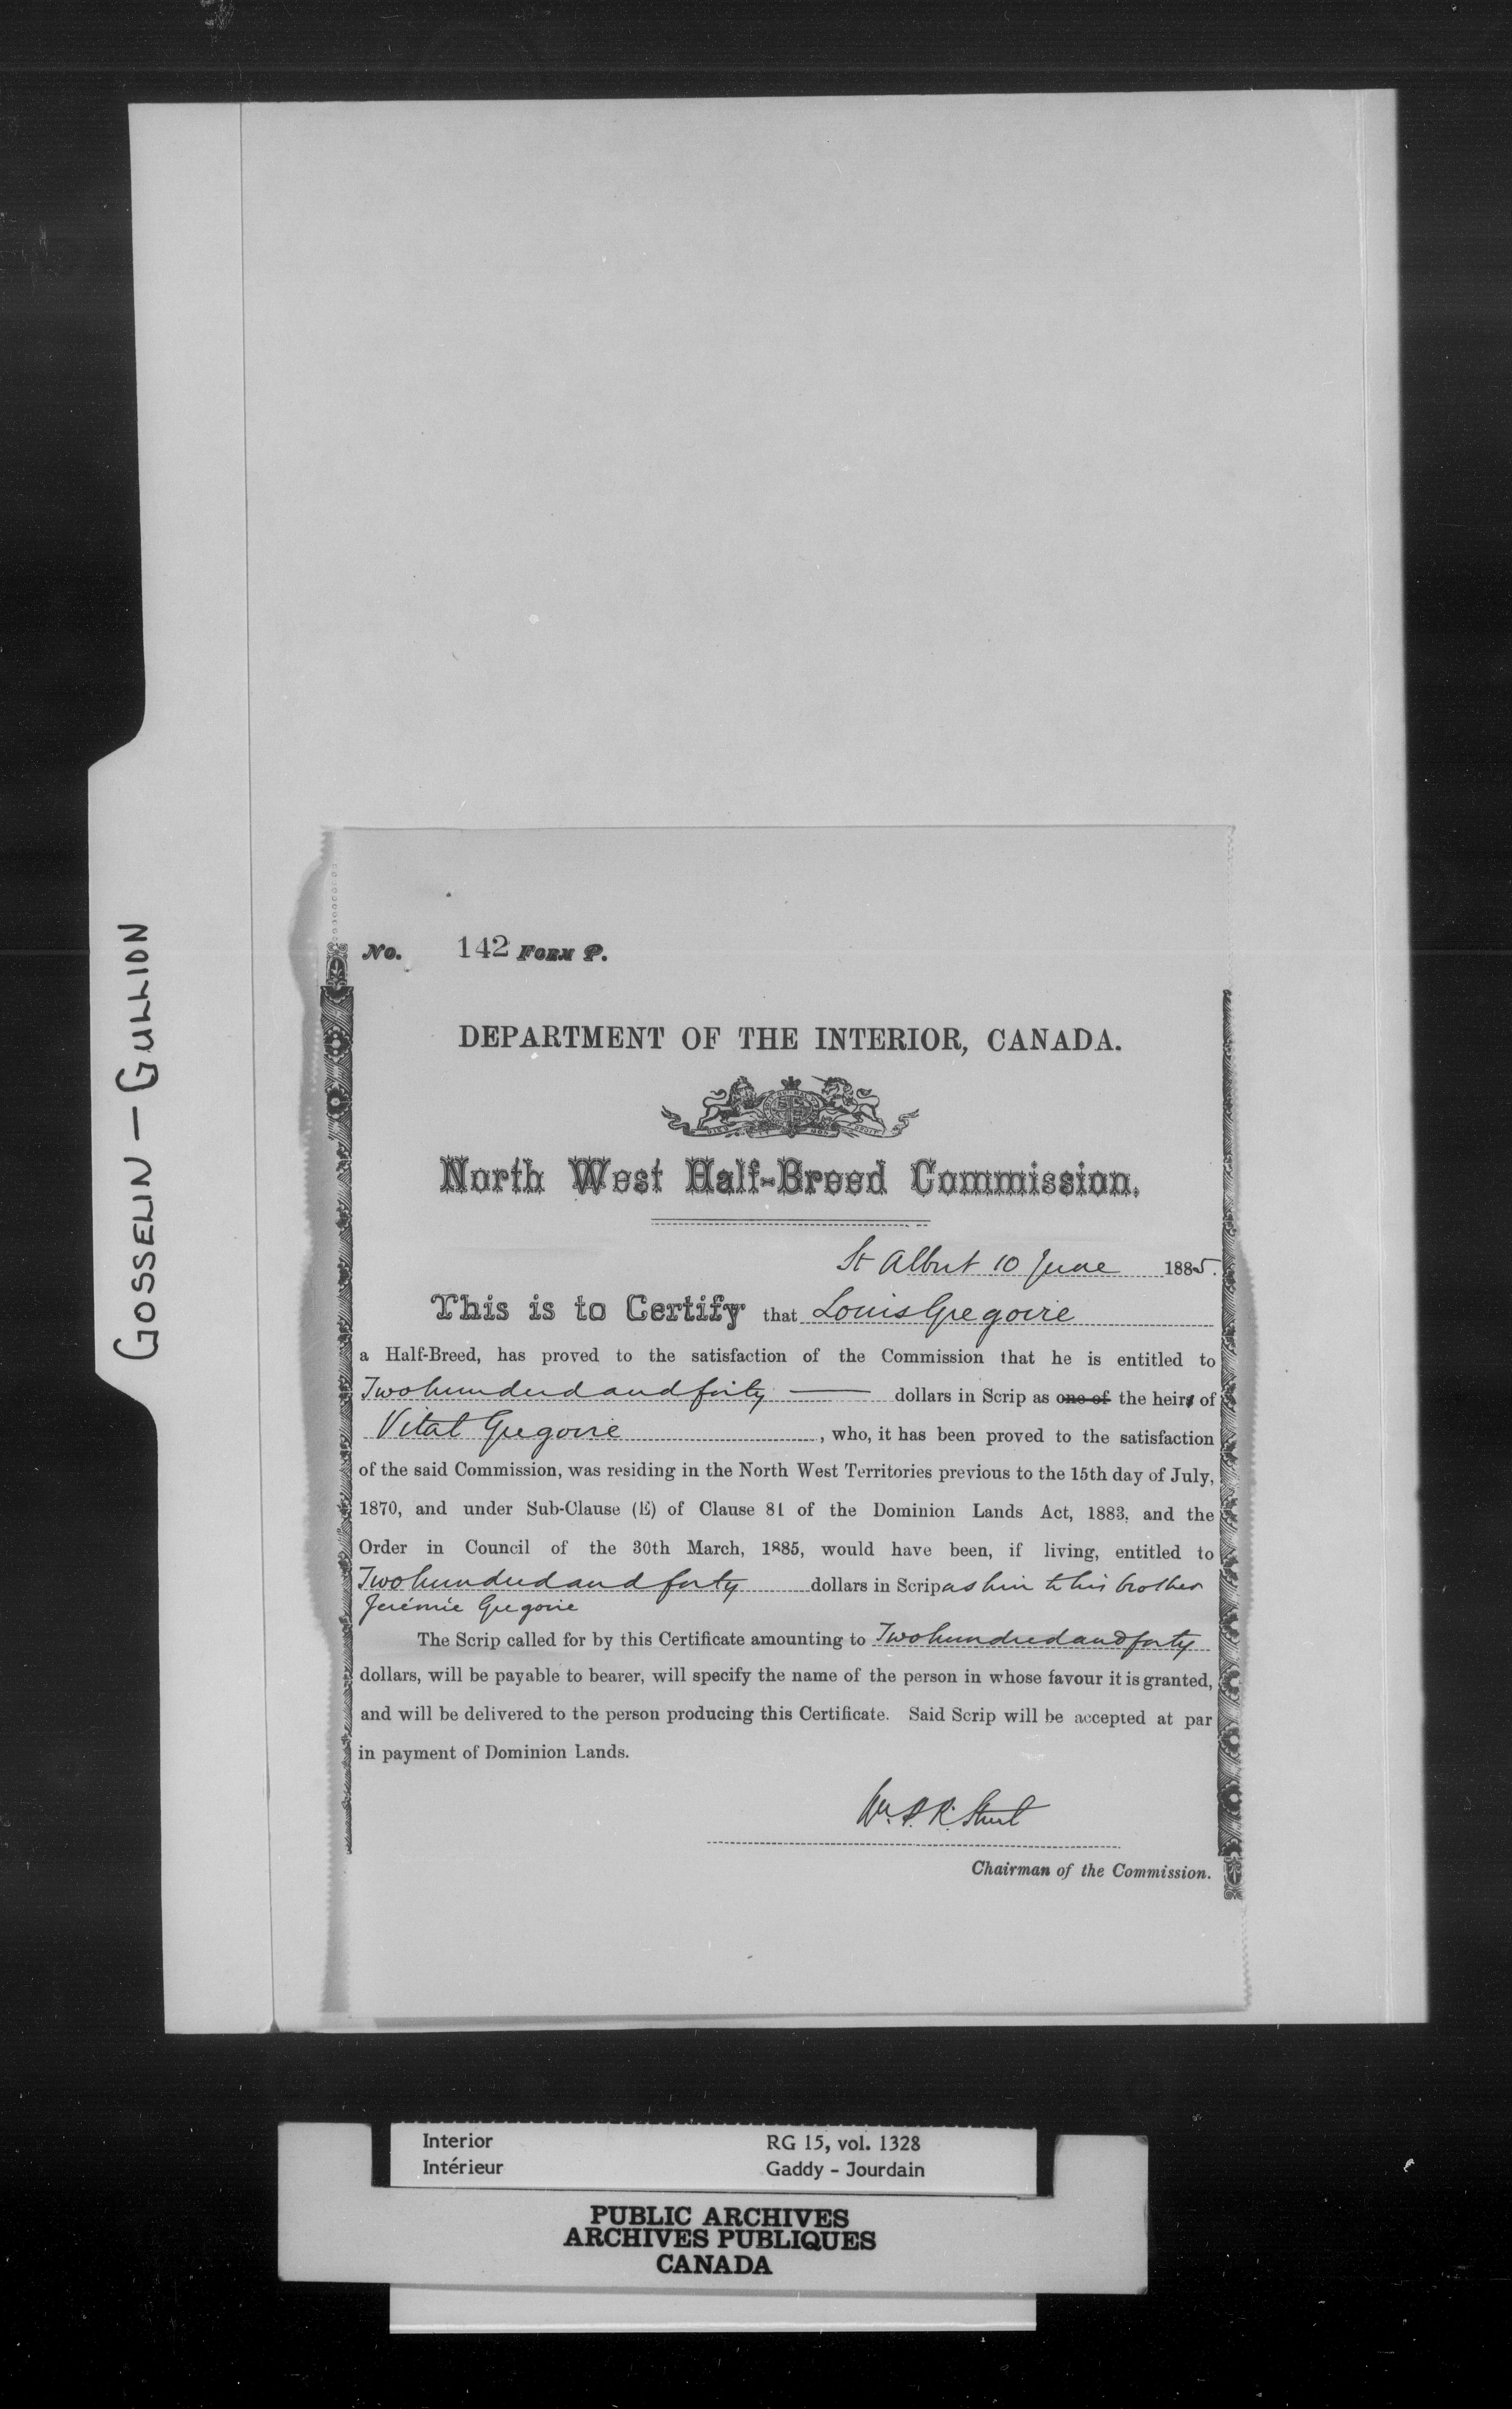 GOSSELIN — GULLION
No. 142 FORM P.
DEPARTMENT OF THE INTERIOR, CANADA.
North West Half-Breed Commission.
St Albert 10 June 1885.
This is to Certify that Louis Gregoire
a Half-Breed, has proved to the satisfaction of the Commission that he is entitled to
Two hundred and forty — dollars in Scrip as one of the heirs of
Vital Gregoire, who, it has been proved to the satisfaction
of the said Commission, was residing in the North West Territories previous to the 15th day of July,
1870, and under Sub-Clause (E) of Clause 81 of the Dominion Lands Act, 1883, and the
Order in Council of the 30th March, 1885, would have been, if living, entitled to
Two hundred and forty dollars in Scrip as heir to his brother
Jerémie Gregoire
The Scrip called for by this Certificate amounting to Two hundred and forty
dollars, will be payable to bearer, will specify the name of the person in whose favour it is granted,
and will be delivered to the person producing this Certificate. Said Scrip will be accepted at par
in payment of Dominion Lands.
Wm. P. R. Street
Chairman of the Commission.
Interior RG 15, vol. 1328
Intérieur Gaddy - Jourdain
PUBLIC ARCHIVES
ARCHIVES PUBLIQUES
CANADA